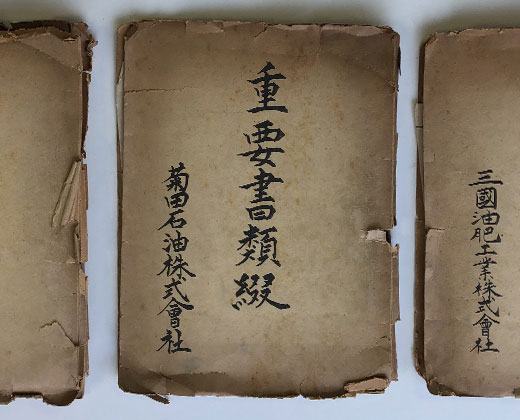 重要書類綴
菊田石油株式會社
三國油肥工業株式會社